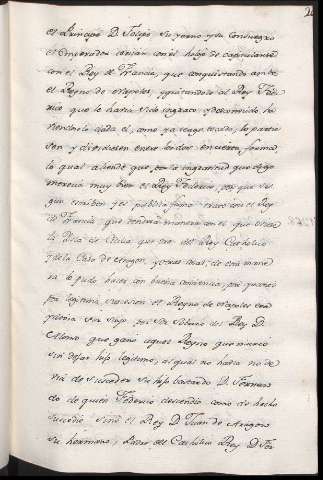 el Principe D. Felipe su yerno y su consuegro
el Emperador tenian con el halago de capitularse
con el Rey de Francia, que conquistando ambos
el Reyno de Napoles, y quitandole al Rey Fede
rico que le havia sido ingrato, y desconocido ha
viendoselo dado el, como ya tengo dicho, lo partie
sen y dividiesen entre los dos en cierta forma,
lo qual allende que por la ingratitud que digo
merecia muy bien el Rey Federico, por que se
gun escriben y es publica fama trató con el Rey
de Francia que tendria manera con el que
Isla de Cicilia que era del Rey Catholico
y de la Casa de Aragon, y otras cosas, de esta mane
ra lo pudo hacer con buena conciencia, por quanto
por legitima sucesion el Reyno de Napoles con
petia ser suyo, por ser Sobrino del Rey D.
Alonso que ganó aquel Reyno que murió
sin dejar hijo legitimo, al qual no havia no de
via de suceder su hijo bastardo D. Fernan
do de quien Federico descendio como de hecho
sucedio sino el Rey D. Juan de Aragon
su hermano, Padre del Catholico Rey D. Fer